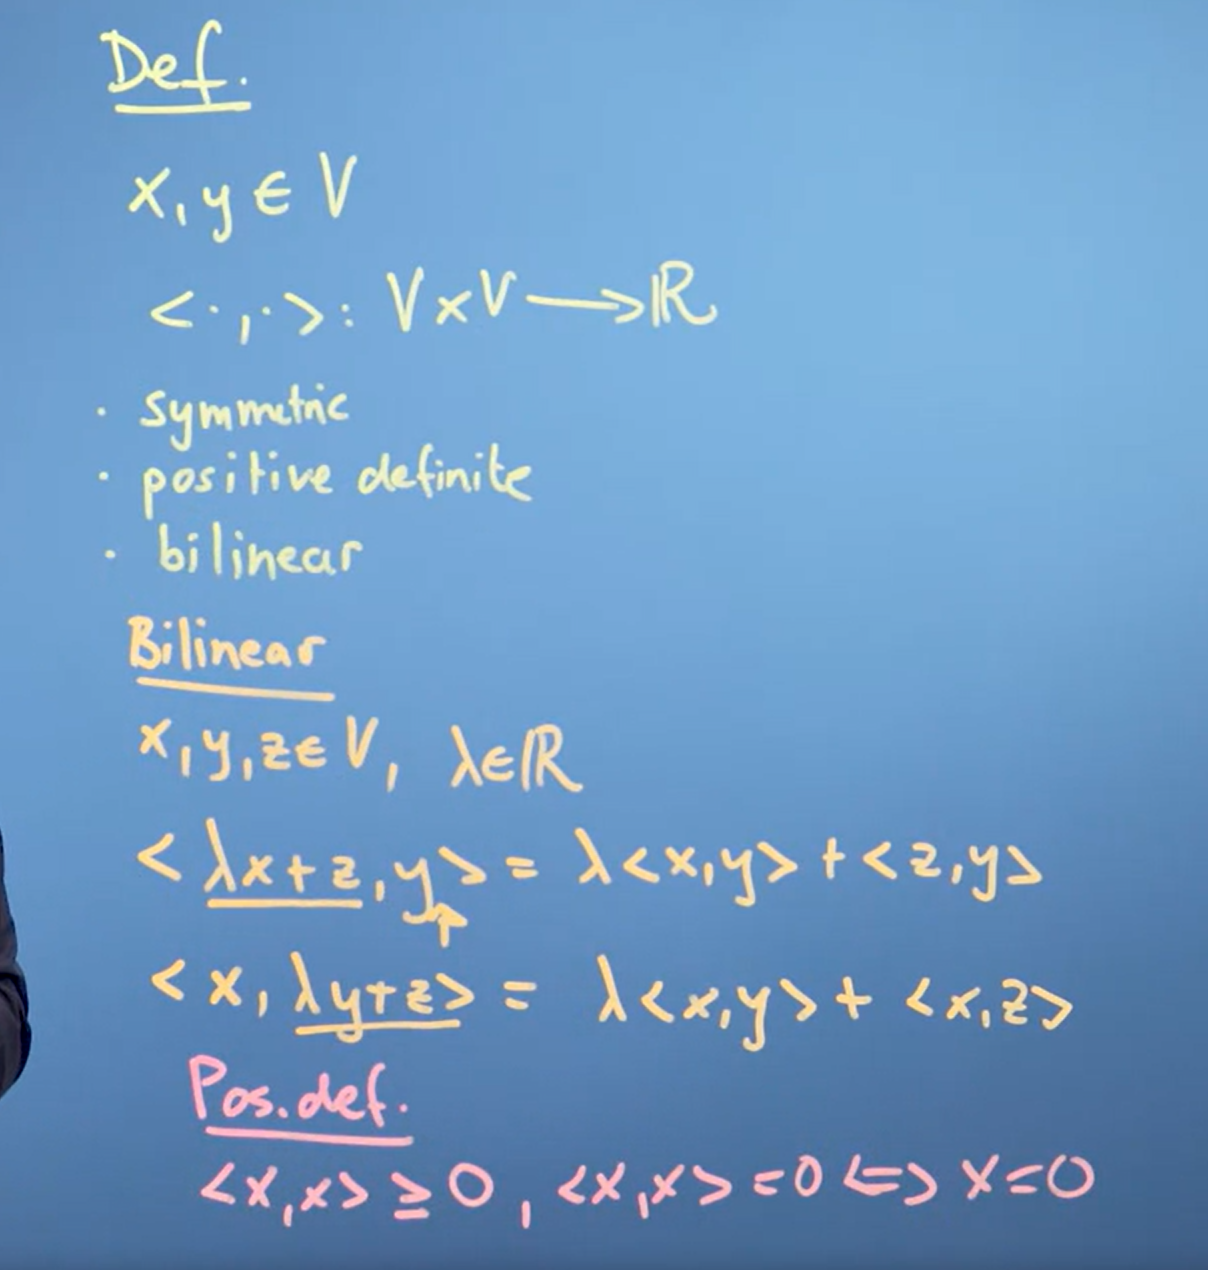 Def.
x, y ∈ V
<·,·>: V×V → ℝ
· symmetric
· positive definite
· bilinear
Bilinear
x, y, z ∈ V, λ ∈ ℝ
<λx+z, y> = λ<x,y> + <z,y>
<x, λy+z> = λ<x,y> + <x,z>
Pos. def.
<x,x> ≥ 0, <x,x> = 0 <=> x = 0